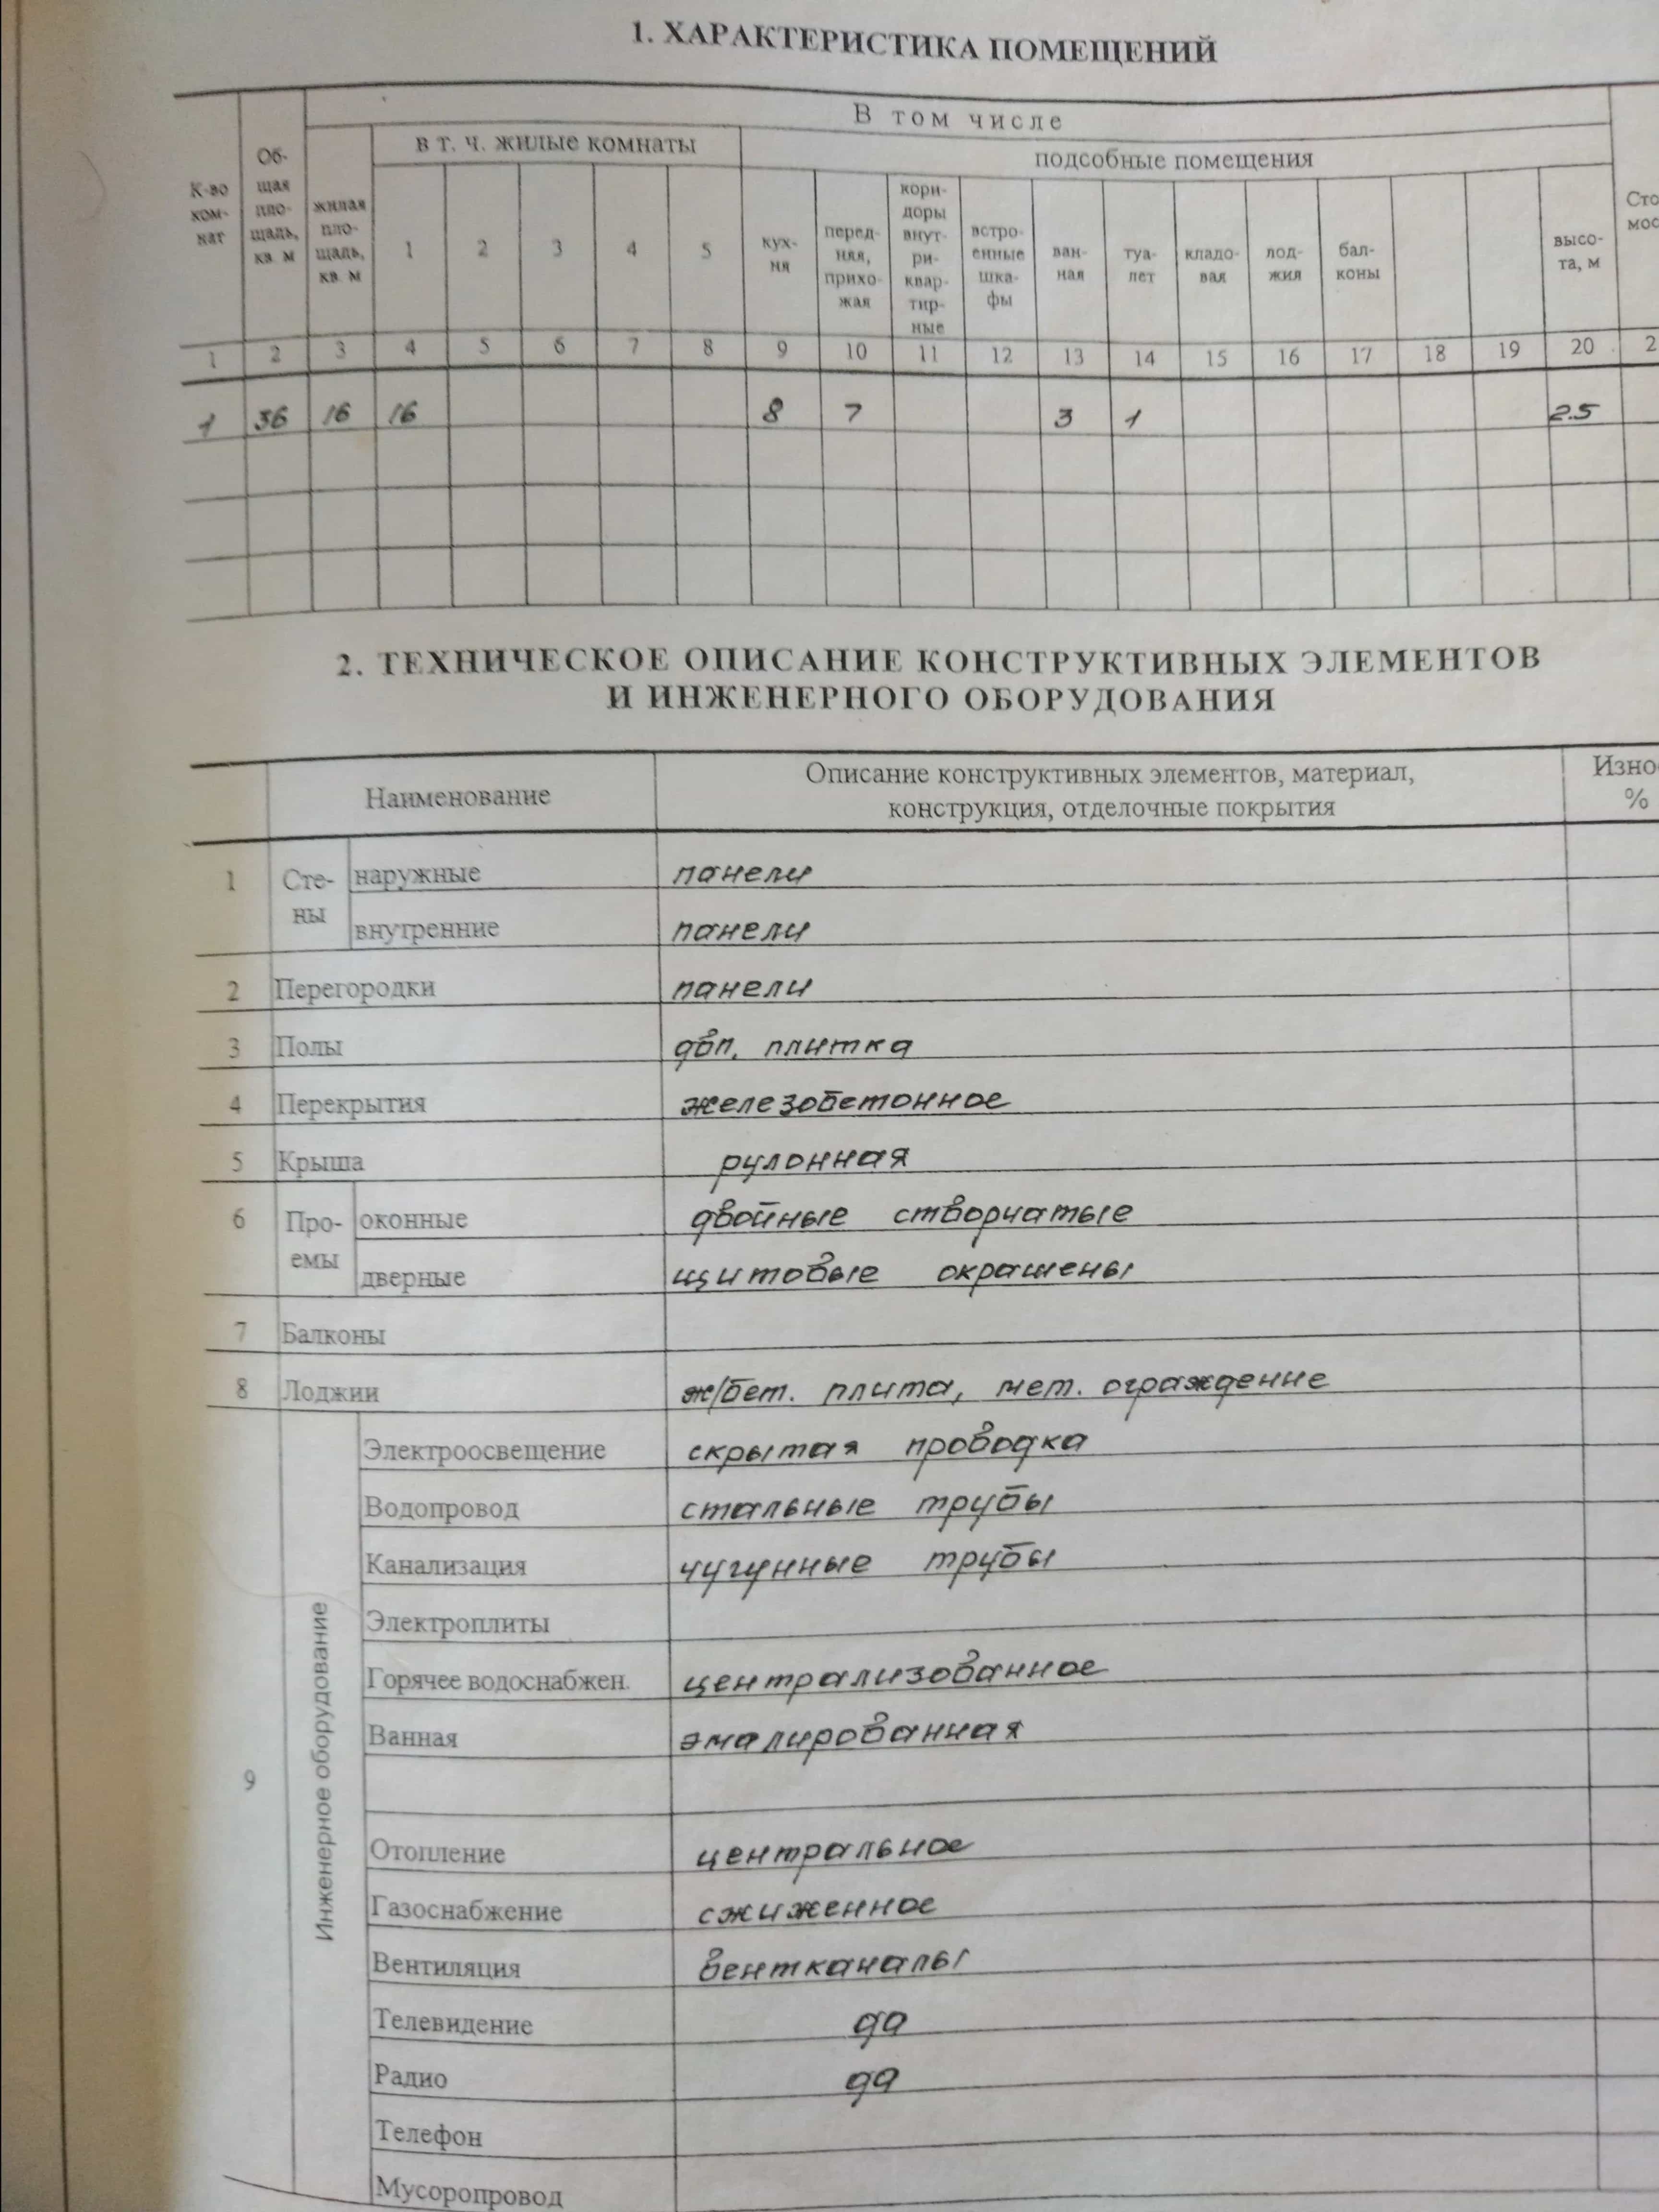 1. ХАРАКТЕРИСТИКА ПОМЕЩЕНИЙ
В том числе
в т. ч. жилые комнаты
подсобные помещения
К-во
ком-
нат
Об-
щая
пло-
щадь,
кв. м
жилая
пло-
щадь,
кв. м
1 2 3 4 5
кух-
ня
перед-
няя,
прихо-
жая
кори-
доры
внут-
ри-
квар-
тир-
ные
встро-
енные
шка-
фы
ван-
ная
туа-
лет
кладо-
вая
лод-
жия
бал-
коны
высо-
та, м
Сто
мос
1 2 3 4 5 6 7 8 9 10 11 12 13 14 15 16 17 18 19 20 2
1 36 16 16 8 7 3 1 2.5
2. ТЕХНИЧЕСКОЕ ОПИСАНИЕ КОНСТРУКТИВНЫХ ЭЛЕМЕНТОВ
И ИНЖЕНЕРНОГО ОБОРУДОВАНИЯ
Наименование
Описание конструктивных элементов, материал,
конструкция, отделочные покрытия
Изно
%
1 Сте-
ны
наружные панели
внутренние панели
2 Перегородки панели
3 Полы двп, плитка
4 Перекрытия железобетонное
5 Крыша рулонная
6 Про-
емы
оконные двойные створчатые
дверные щитовые окрашены
7 Балконы
8 Лоджии ж/бет. плита, мет. ограждение
9 Инженерное оборудование
Электроосвещение скрытая проводка
Водопровод стальные трубы
Канализация чугунные трубы
Электроплиты
Горячее водоснабжен. централизованное
Ванная эмалированная
Отопление центральное
Газоснабжение сжиженное
Вентиляция вентканалы
Телевидение да
Радио да
Телефон
Мусоропровод